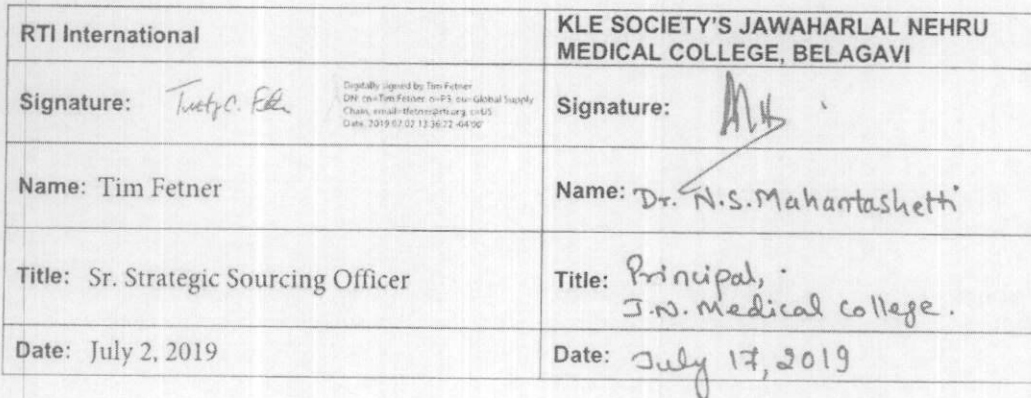 RTI International
KLE SOCIETY'S JAWAHARLAL NEHRU
MEDICAL COLLEGE, BELAGAVI
Signature:
Digitally signed by Tim Fetner
DN: cn=Tim Fetner, o=P3, ou=Global Supply
Chain, email=tfetner@rti.org, c=US
Date: 2019.07.02 13:36:22 -04'00'
Signature:
Name: Tim Fetner
Name: Dr. N.S. Mahantashetti
Title: Sr. Strategic Sourcing Officer
Title: Principal,
J.N. Medical College.
Date: July 2, 2019
Date: July 17, 2019